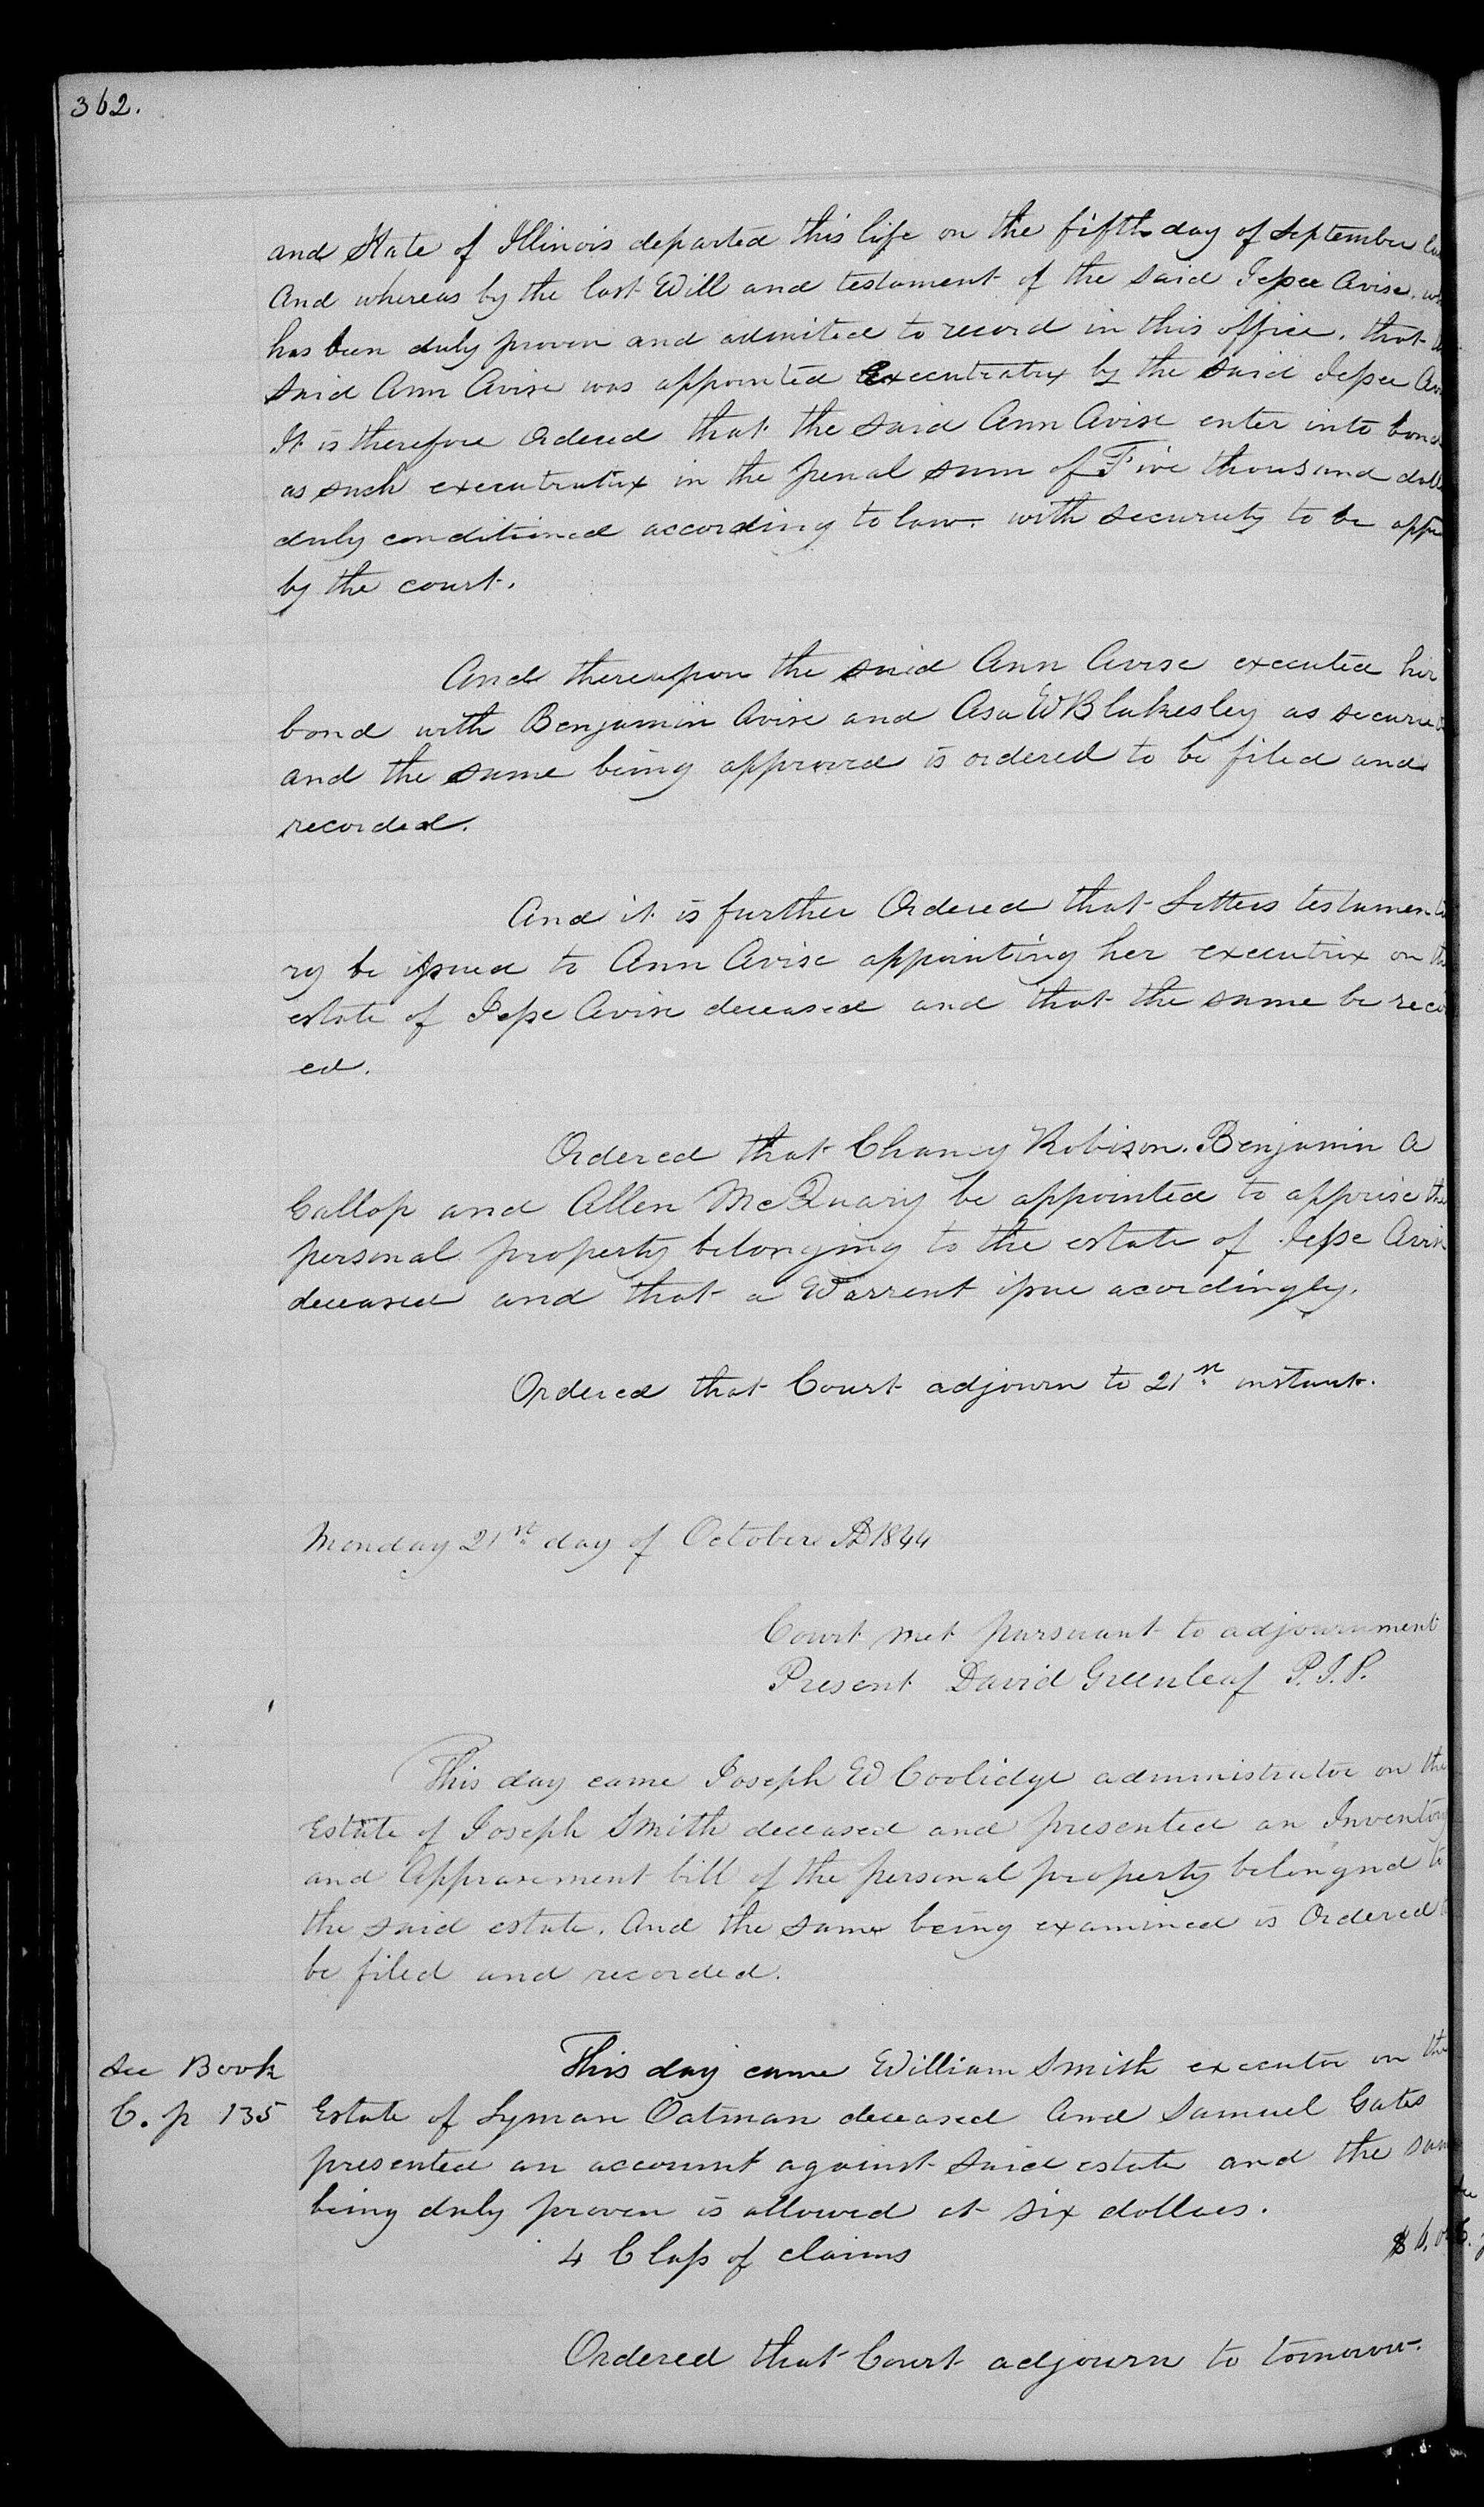 362.
and State of Illinois departed this life on the fifth day of September
And whereas by the last Will and testament of the said Jessee Avise.
has been duly proven and admited to record in this office, that
said Ann Avise was appointed Executratrix by the said Jessee
It is therefore Ordered that the said Ann Avise enter into bond
as such executratrix in the penal sum of Five thousand
duly conditioned according to law. with security to be
by the court.
And thereupon the said Ann Avise executed her
bond with Benjamin Avise and Asa W Blakesley as
and the same being approved is ordered to be filed and
recorded.
And it is further Ordered that Letters testamenta
ry be issued to Ann Avise appointing her executrix on the
estate of Jesse Avise deceased and that the same be
ed.
Ordered that Chancy Robison. Benjamin A
Gallop and Allen McQuary be appointed to apprise the
personal property belonging to the estate of Jesse Avise
deceased and that a Warrent issue acordingly.
Ordered that Court adjourn to 21st instant.
Monday 21st day of October AD 1844
Court met pursuant to adjournment
Present David Greenleaf P.J.P.
This day came Joseph W Coolidge administrator on the
Estate of Joseph Smith deceased and presented an Inventory
and Apprasement bill of the personal property belongnd to
the said estate. And the same being examined is Ordered to
be filed and recorded.
See Book
C. p 135
This day came William Smith executor on the
Estate of Lyman Oatman deceased and Samuel Gates
presented an account against said estate and the same
being duly proven is allowed at six dollars.
4 Class of claims $6,00
Ordered that Court adjourn to tomorrow.